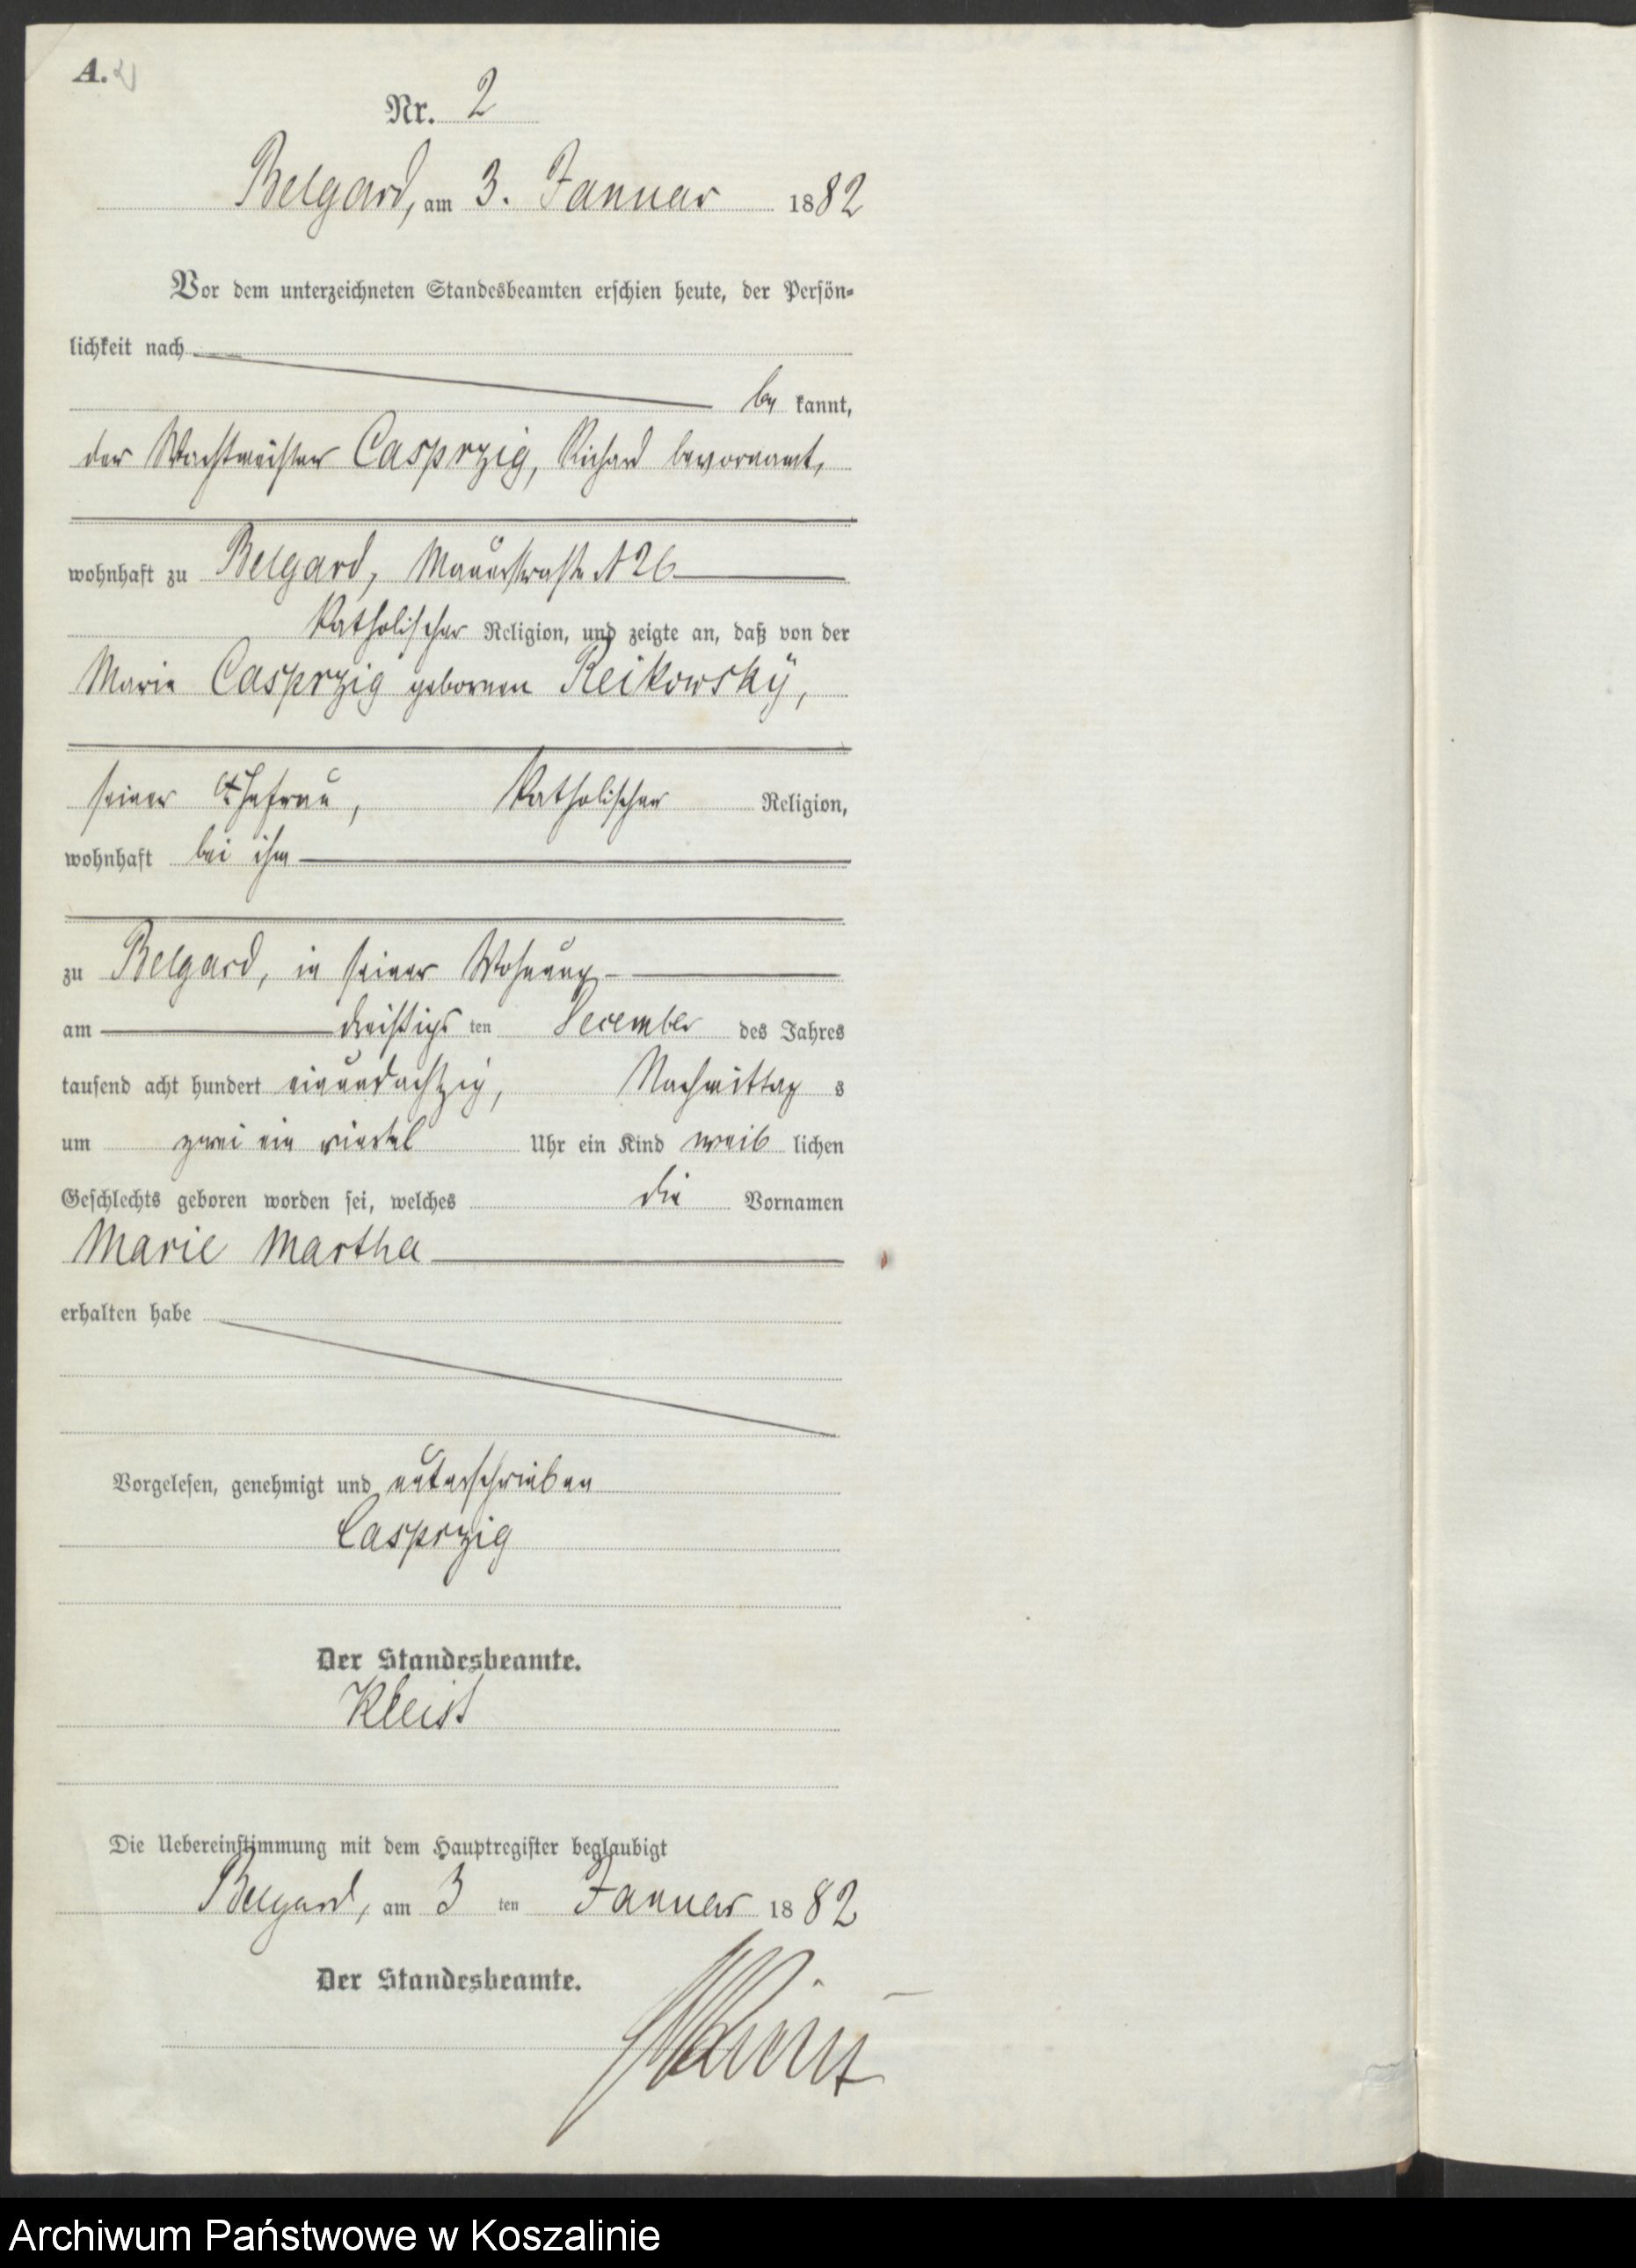 A. 2
Nr. 2
Belgard, am 3. Januar 1882
Vor dem unterzeichneten Standesbeamten erschien heute, der Persön-
lichkeit nach
be kannt,
der Wachtmeister Casprzig, Richard bevornamt,
wohnhaft zu Belgard, Mauerstraße N 26
katholischer Religion, und zeigte an, daß von der
Marie Casprzig geborenen Reikowsky,
seiner Ehefrau, katholischer Religion,
wohnhaft bei ihm
zu Belgard, in seiner Wohnung
am dreißigs ten December des Jahres
tausend acht hundert einundachtzig, Nachmittag s
um zwei ein viertel Uhr ein Kind weib lichen
Geschlechts geboren worden sei, welches die Vornamen
Marie Martha
erhalten habe
Vorgelesen, genehmigt und unterschrieben
Casprzig
Der Standesbeamte.
Kleist
Die Uebereinstimmung mit dem Hauptregister beglaubigt
Belgard, am 3 ten Januar 1882
Der Standesbeamte.
Archiwum Państwowe w Koszalinie